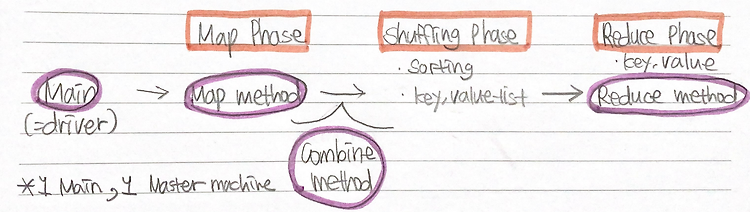 Map Phase
Shuffling Phase
Reduce Phase
· Sorting
· key, value
Main → Map method → · key, value-list → Reduce method
(=driver)
Combine method
*1 Main, 1 Master machine